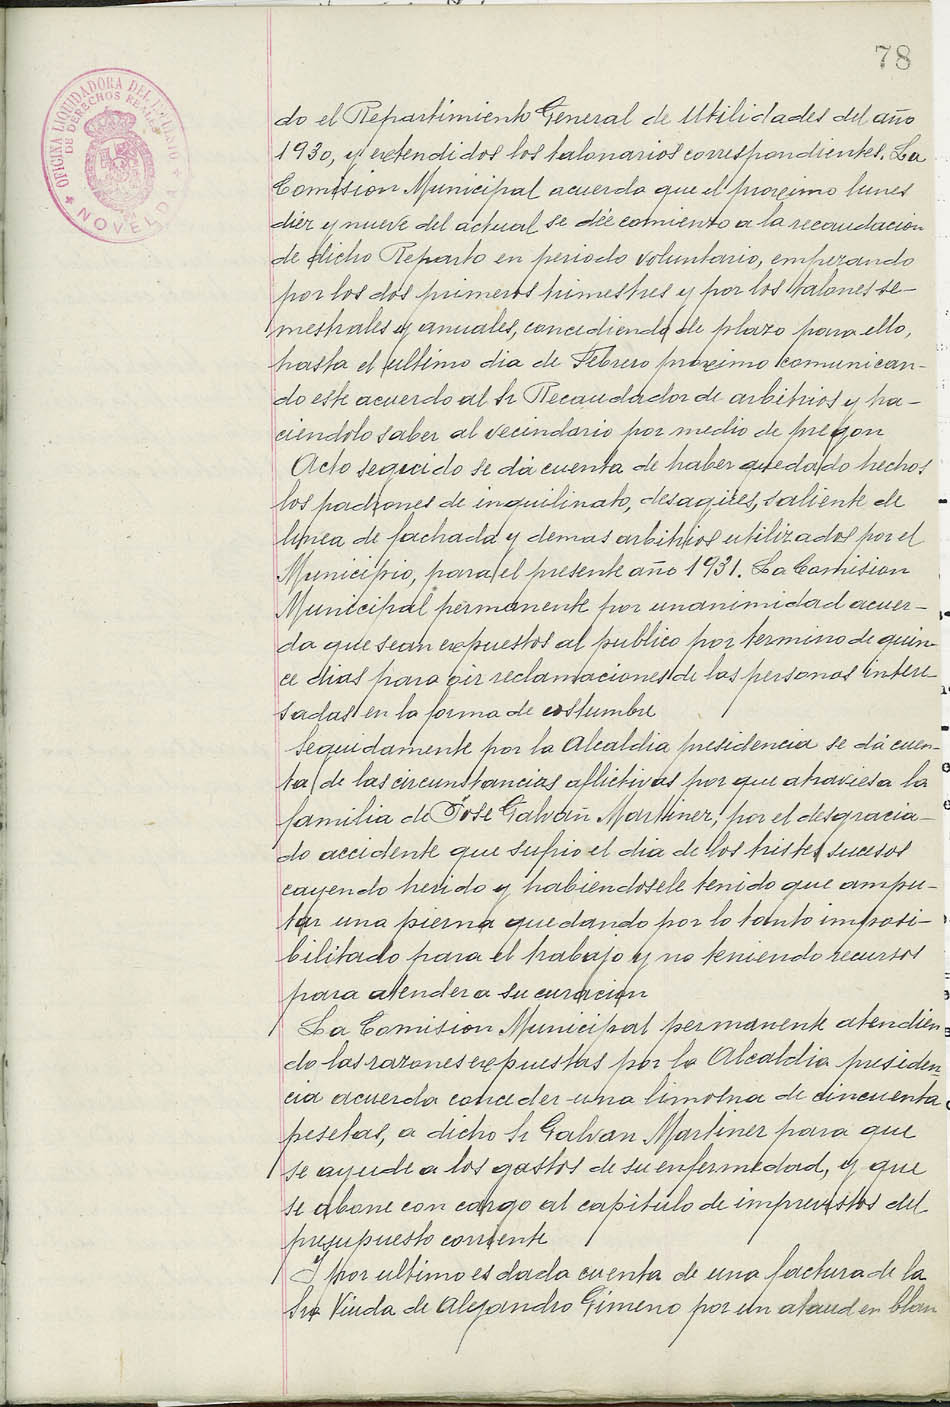 78
OFICINA LIQUIDADORA DEL IMPUESTO
DE DERECHOS REALES
NOVELDA
do el Repartimiento General de Utilidades del año
1930, y extendidos los talonarios correspondientes. La
Comision Municipal acuerda que el proximo lunes
diez y nueve del actual se dée comienzo a la recaudacion
de dicho Reparto en periodo voluntario, empezando
por los dos primeros trimestres y por los talones se-
mestrales y anuales, concediendo de plazo para ello,
hasta el ultimo dia de Febrero proximo comunican-
do este acuerdo al Sr Recaudador de arbitrios y ha-
ciendolo saber al vecindario por medio de pregon
Acto seguido se dá cuenta de haber quedado hechos
los padrones de inquilinato, desagües, saliente de
linea de fachada y demas arbitrios utilizados por el
Municipio, para el presente año 1931. La Comision
Municipal permanente por unanimidad acuer-
da que sean expuestos al publico por termino de quin-
ce dias para oir reclamaciones de las personas intere-
sadas en la forma de costumbre
Seguidamente por la Alcaldia presidencia se dá cuen-
ta de las circunstancias aflictivas por que atraviesa la
familia de José Galvañ Martinez, por el desgracia-
do accidente que sufrio el dia de los tristes sucesos
cayendo herido y habiendosele tenido que ampu-
tar una pierna quedando por lo tanto imposi-
bilitado para el trabajo y no teniendo recursos
para atender a su curacion
La Comision Municipal permanente atendien
do las razones expuestas por la Alcaldia presiden-
cia acuerda conceder una limosna de cincuenta
pesetas, a dicho Sr Galvan Martinez para que
se ayude a los gastos de su enfermedad, y que
se abone con cargo al capitulo de imprevistos del
presupuesto corriente
Y por ultimo es dada cuenta de una factura de la
Sra Viuda de Alejandro Gimeno por un ataud en blan